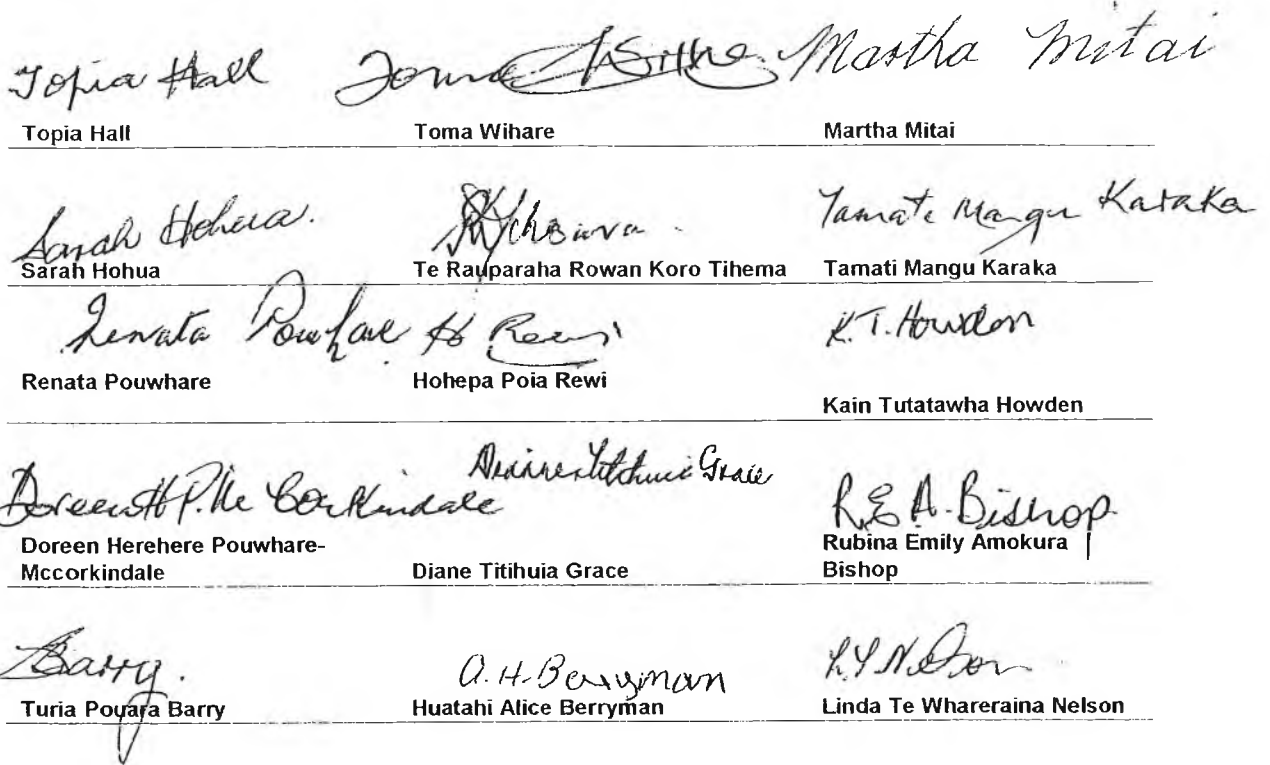 Topia Hall Martha Mitai
Topia Hall Toma Wihare Martha Mitai
Sarah Hohua.
Tamati Mangu Karaka
Sarah Hohua Te Rauparaha Rowan Koro Tihema Tamati Mangu Karaka
Renata Pouwhare H Rewi K.T. Howden
Renata Pouwhare Hohepa Poia Rewi
Kain Tutatawha Howden
Doreen H P. Mc Corkindale Grace R E A. Bishop
Doreen Herehere Pouwhare-
Mccorkindale Diane Titihuia Grace Rubina Emily Amokura
Bishop
Barry. A. H. Berryman L Y Nelson
Turia Pouara Barry Huatahi Alice Berryman Linda Te Whareraina Nelson